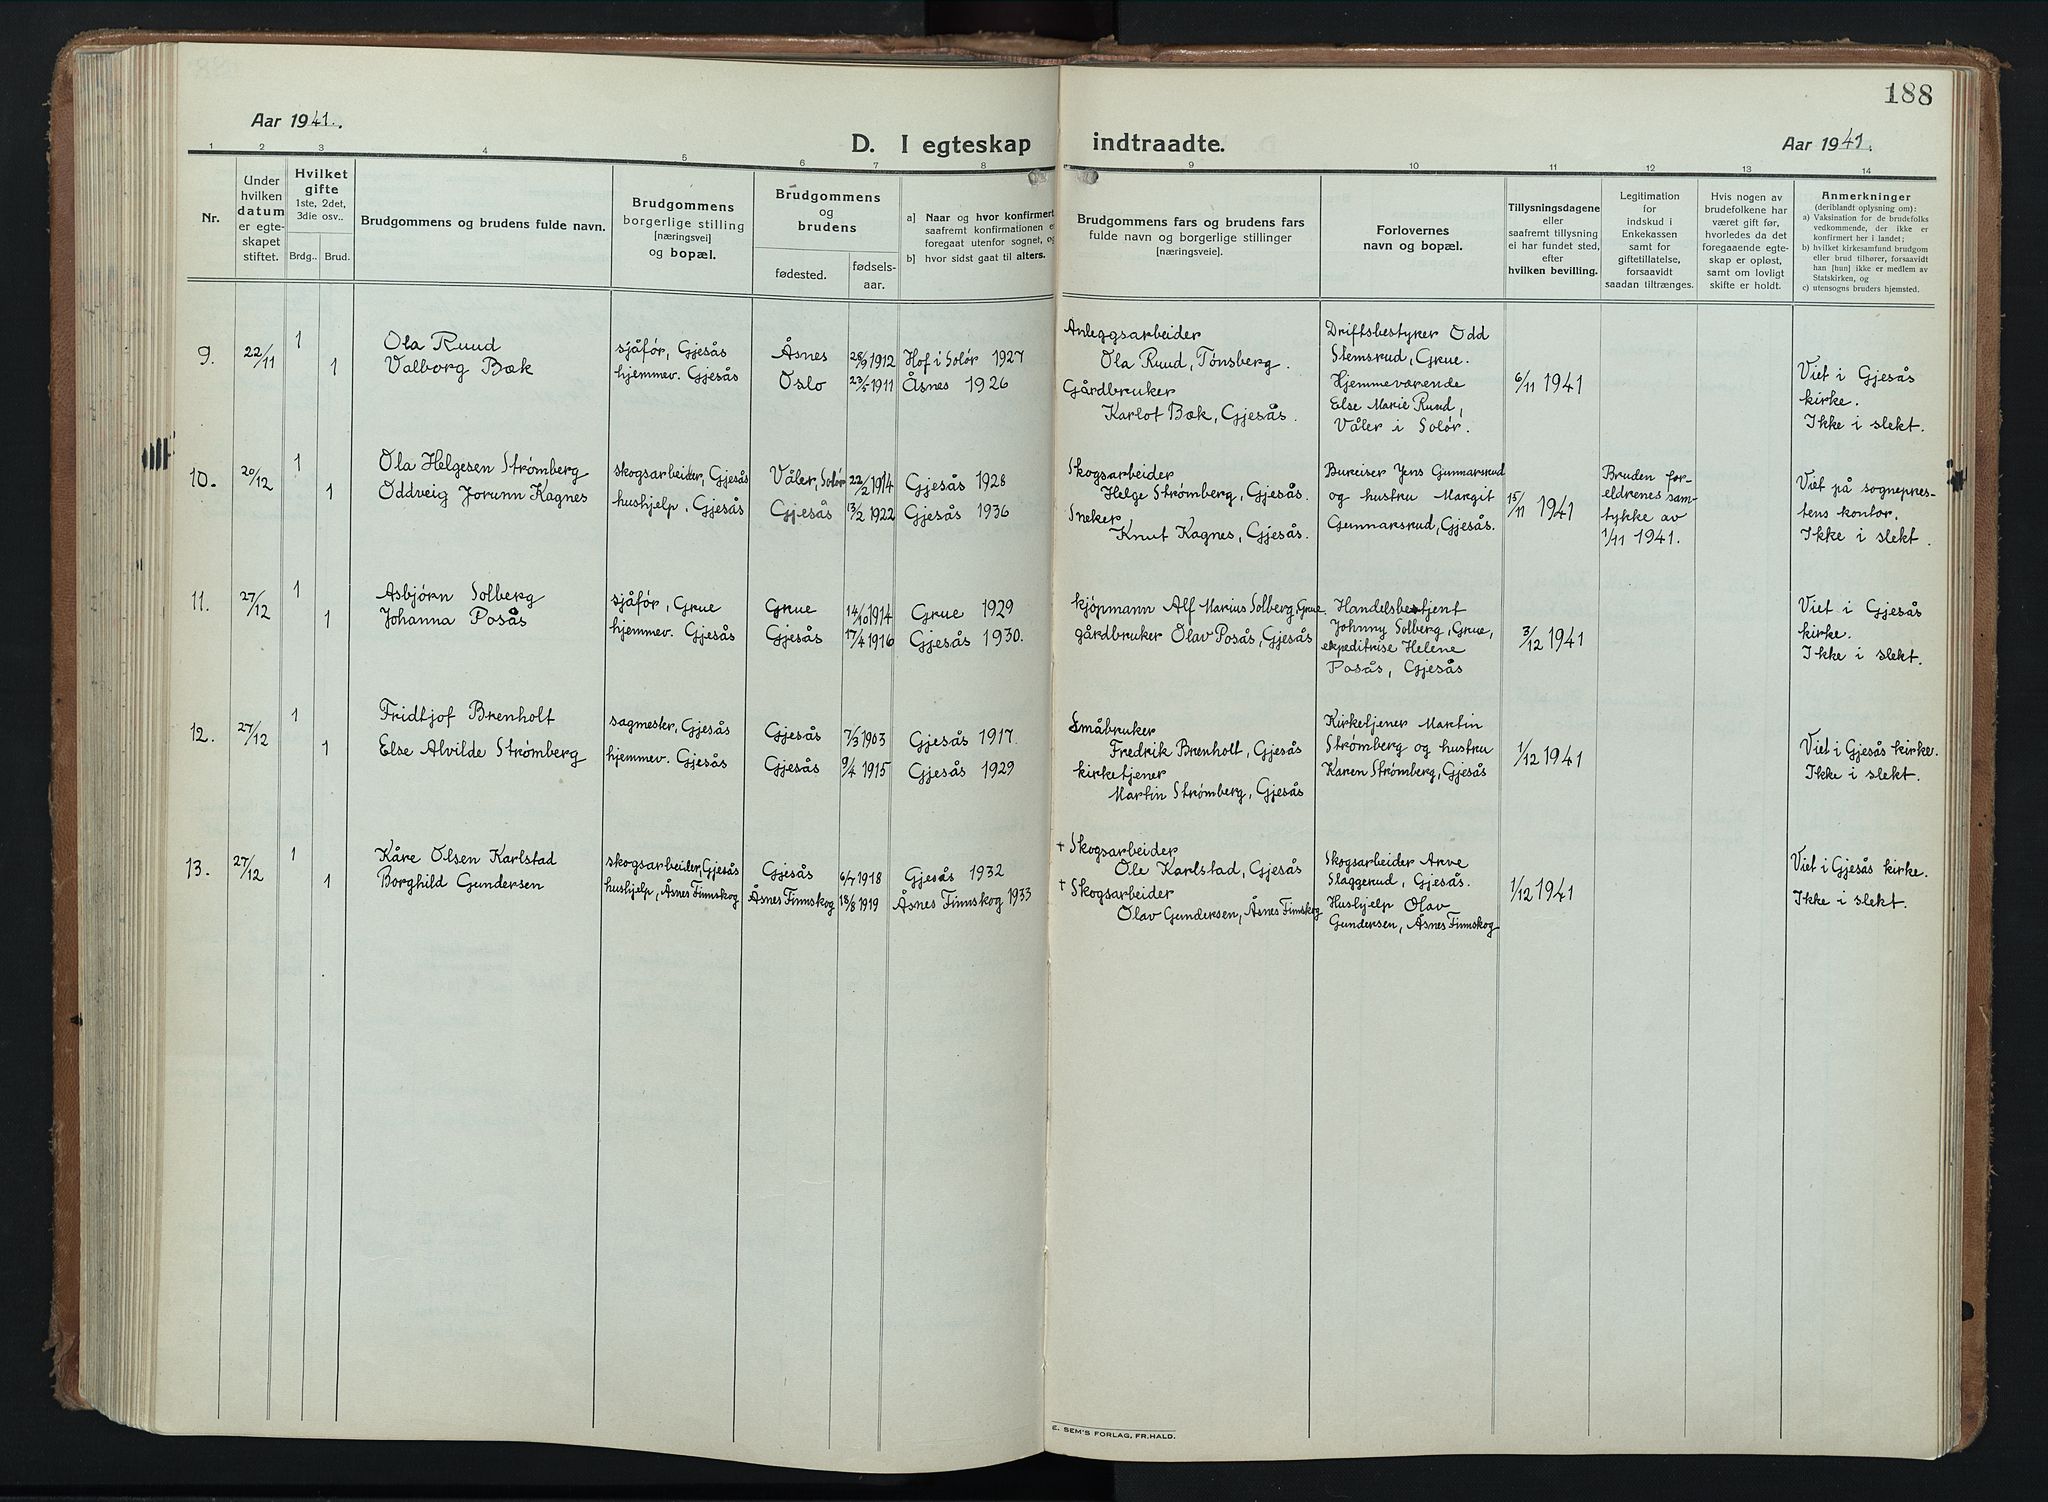 188
Aar 1941.
D. I egteskap indtraadte.
Aar 1941.
1 2 3 4 5 6 7 8 9 10 11 12 13 14
Nr.
Under hvilken datum er egteskapet stiftet.
Hvilket gifte 1ste, 2det, 3die osv..
Brdg.. Brud.
Brudgommens og brudens fulde navn.
Brudgommens borgerlige stilling [næringsvei] og bopæl.
Brudgommens og brudens
fødested.
fødsels-aar.
a] Naar og hvor konfirmert saafremt konfirmationen foregaat utenfor sognet, og
b] hvor sidst gaat til alters.
Brudgommens fars og brudens fars fulde navn og borgerlige stillinger [næringsveie].
Forlovernes navn og bopæl.
Tillysningsdagene eller saafremt tillysning ei har fundet sted, efter hvilken bevilling.
Legitimation for indskud i Enkekassen samt for giftetillatelse, forsaavidt saadan tiltrænges.
Hvis nogen av brudefolkene har været gift før, hvorledes da det foregaaende egteskap er opløst, samt om lovligt skifte er holdt.
Anmerkninger
(deriblandt oplysning om):
a) Vaksination for de brudefolks vedkommende, der ikke er konfirmert her i landet;
b) hvilket kirkesamfund brudgom eller brud tilhører, forsaavidt han [hun] ikke er medlem av Statskirken, og
c) utensogns bruders hjemsted.
9. 22/11 1 1
Ola Ruud
Valborg Bæk
sjåfør, Gjesås
hjemmev. Gjesås
Åsnes 28/9 1912 Hof i Solør 1927
Oslo 23/5 1911 Åsnes 1926
Anleggsarbeider
Ola Ruud, Tønsberg.
Gårdbruker
Karlot Bæk, Gjesås.
Driftsbestyrer Odd
Stemsrud, Grue.
Hjemmeværende
Else Marie Ruud,
Våler i Solør.
6/11 1941
Viet i Gjesås
kirke.
Ikke i slekt.
10. 20/12 1 1
Ola Helgesen Strømberg
Oddveig Jorunn Kagnes
skogsarbeider, Gjesås
hushjelp, Gjesås
Våler, Solør 22/2 1914 Gjesås 1928
Gjesås 13/2 1922 Gjesås 1936
Skogsarbeider
Helge Strømberg, Gjesås.
Sneker
Knut Kagnes, Gjesås.
Bureiser Jens Gunnarsrud
og hustru Margit
Gunnarsrud, Gjesås.
15/11 1941
Bruden for-
eldrenes sam-
tykke av
1/11 1941.
Viet på sognepres-
tens kontor.
Ikke i slekt.
11. 27/12 1 1
Asbjørn Solberg
Johanna Posås
sjåfør, Grue
hjemmev. Gjesås
Grue 14/10 1914 Grue 1929
Gjesås 17/4 1916 Gjesås 1930.
kjøpmann Alf Marius Solberg, Grue.
gårdbruker Olav Posås, Gjesås
Handelsbetjent
Johnny Solberg, Grue,
ekspeditrise Helene
Posås, Gjesås
3/12 1941
Viet i Gjesås
kirke.
Ikke i slekt.
12. 27/12 1 1
Fridtjof Brenholt
Else Alvilde Strømberg
sagmester, Gjesås
hjemmev. Gjesås
Gjesås 7/3 1903 Gjesås 1917.
Gjesås 9/4 1915 Gjesås 1929
Småbruker
Fredrik Brenholt, Gjesås
kirketjener
Martin Strømberg, Gjesås
Kirketjener Martin
Strømberg og hustru
Karen Strømberg, Gjesås
1/12 1941
Viet i Gjesås kirke.
Ikke i slekt.
13. 27/12 1 1
Kåre Olsen Karlstad
Borghild Gundersen
skogsarbeider, Gjesås
hushjelp, Åsnes Finnskog
Gjesås 6/7 1918 Gjesås 1932
Åsnes Finnskog 18/8 1919 Åsnes Finnskog 1933
+ Skogsarbeider
Ole Karlstad, Gjesås
+ Skogsarbeider
Olav Gundersen, Åsnes Finnskog
Skogsarbeider Arve
Slaggerud, Gjesås.
Hushjelp Olav
Gundersen, Åsnes Finnskog
1/12 1941
Viet i Gjesås kirke.
Ikke i slekt.
E. SEM'S FORLAG, FR.HALD.